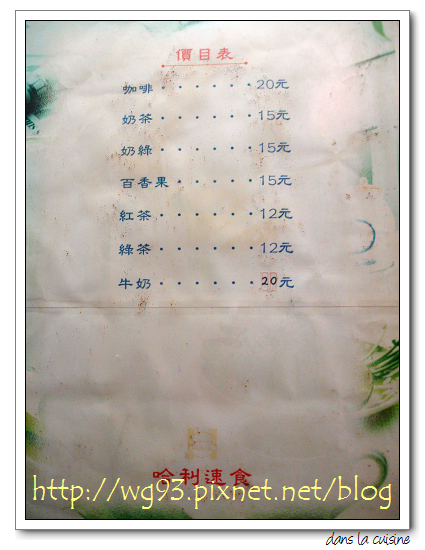 價目表
咖啡······20元
奶茶······15元
奶綠······15元
百香果·····15元
紅茶······12元
綠茶······12元
牛奶······20元
哈利速食
http://wg93.pixnet.net/blog
dans la cuisine